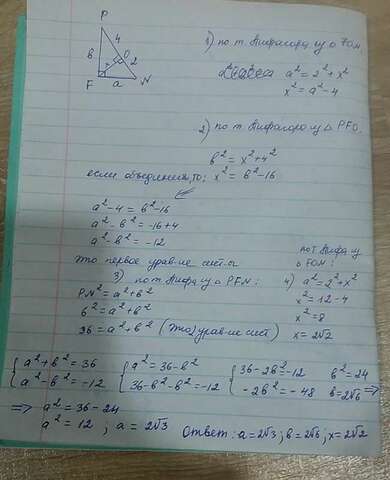 P
4
O
в
x
2
F
a
N
1) по т. Пифагора из △ FOM
a² = 2² + x²
x² = a² - 4
2) по т. Пифагора из △ PFO.
в² = x² + 4²
если объединить, то: x² = в² - 16
a² - 4 = в² - 16
a² - в² = -16 + 4
a² - в² = -12
это первое урав-ие сист-ы
3) по т. Пифа из △ PFN:
PN² = a² + в²
6² = a² + в²
36 = a² + в² (это 2) урав-ие сист)
по т. Пифа из
△ FOM:
4) a² = 2² + x²
x² = 12 - 4
x² = 8
x = 2√2
{ a² + в² = 36 { a² = 36 - в² { 36 - 2в² = -12 в² = 24
{ a² - в² = -12 { 36 - в² - в² = -12 { -2в² = -48 в = 2√6 =>
=> a² = 36 - 24
a² = 12 , a = 2√3
Ответ: a = 2√3; в = 2√6; x = 2√2